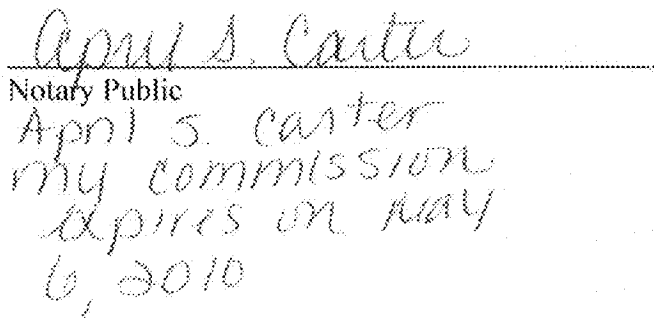 April S. Carter
Notary Public
April S. Carter
my commission
expires on May
6, 2010